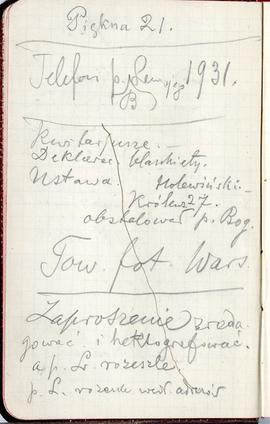 Piękna 21.
Telefon p. 1931.
Kwitarjusze.
Deklarac. blankiety.
Ustawa. Molewiński
Królew. 27.
obstalować p. Bog.
Tow. fot. Wars.
Zaproszenie zreda
gować i hektografować.
a p. Lr. rozeszle.
p. L. wedł. adresów